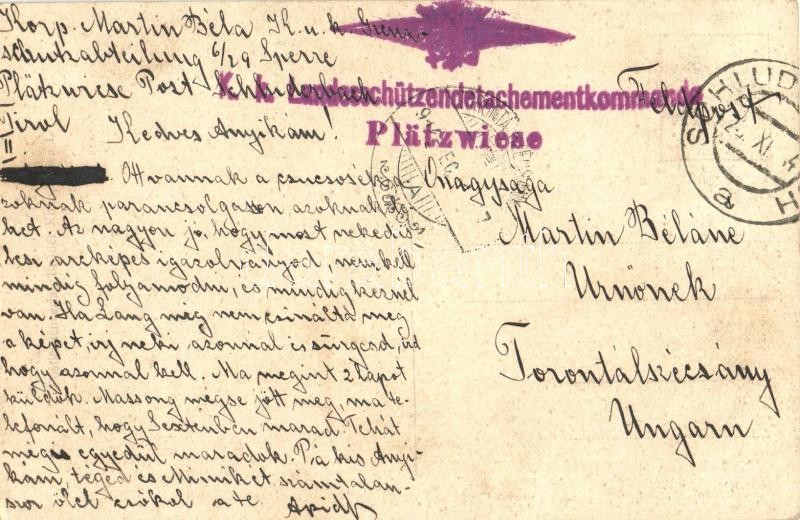 Korp. Martin Béla K. u. k. Grenz-
schutzabteilung 6/29 Sperre
Plätzwiese Post Schluderbach
Tirol Kedves Anyikám!
K. k. Landesschützendetachementkommando
Plätzwiese
Feldpost
SCHLUD
XI
a
Ott vannak a csucsosék a
zoknak parancsolgasson, azoknak le-
het. Az nagyon jó, hogy most neked is
lesz arcképes igazolványod, nem kell
mindig folyamodni, és mindig kéznél
van. Ha Lang még nem csinálta meg
a képet, írj neki azonnal és sürgesd,
hogy azonnal kell. Ma megint 2 lapot
küldök. Massong mégse jött meg, ma te-
lefonált, hogy Sextenben marad. Tehát
mégis egyedül maradok. Pá kis Anyi-
kám, téged és Mimikét számtalan-
szor ölel csókol a te Apid
Önagysága
Martin Béláné
Urnőnek
Torontálszécsány
Ungarn